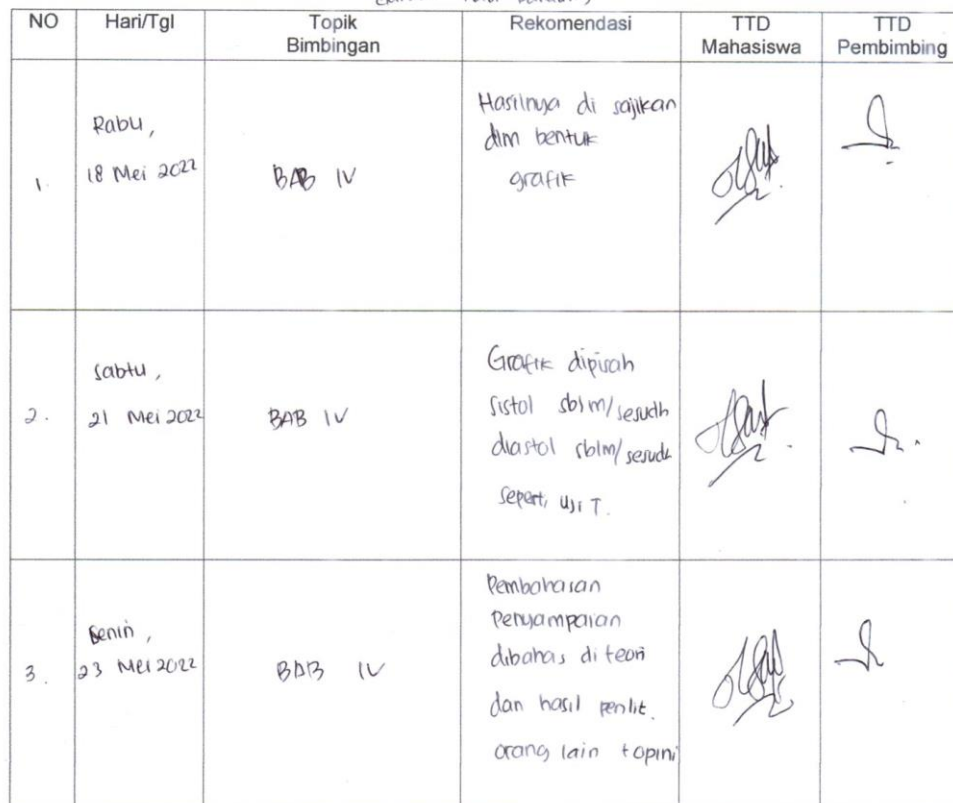 NO Hari/Tgl Topik Bimbingan Rekomendasi TTD Mahasiswa TTD Pembimbing
1. Rabu, 18 Mei 2022 BAB IV Hasilnya di sajikan
dlm bentuk
grafik
2. Sabtu, 21 Mei 2022 BAB IV Grafik dipisah
sistol sblm/sesudh
diastol sblm/sesudh
seperti uji T.
3. Senin, 23 Mei 2022 BAB IV Pembahasan
Penyampaian
dibahas di teori
dan hasil penlit.
orang lain + opini